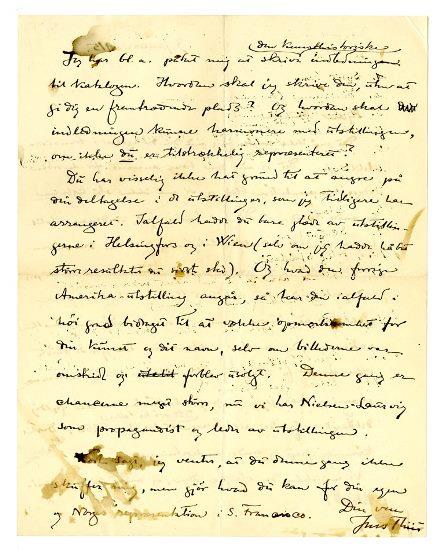 den kunsthistoriske
Jeg har bl. a. påtat mig at skrive indledningen
til Katalogen. Hvordan skal jeg skrive den, uten at
gi dig en fremtrædende plads? Og hvordan skal
indledningen kunne harmonere med utstillingen,
om ikke du er tilstrækkelig repræsenteret?
Du har visselig ikke hat grund til at angre på
din deltagelse i de utstillinger, som jeg tidligere har
arrangeret. Ialfald hadde du bare glæde av utstillin-
gerne i Helsingfors og i Wien (selv om jeg hadde
større resultater du sked). Og hvad den forrige
Amerika-utstilling angår, så har den ialfald i
høi grad bidraget til at vække opmerksomhet for
din kunst og dit navn, selv om billederne var
og forblev usolgt. Denne gang er
chancerne meget større, nu vi har Nielsen-Lauvvig
som propagandist og leder av utstillingen.
jeg venter, at du denne gang ikke
skuffer mig, men gjør hvad du kan for din egen
og Norges repræsentation i S. Francisco.
Din ven
Jens Thiis